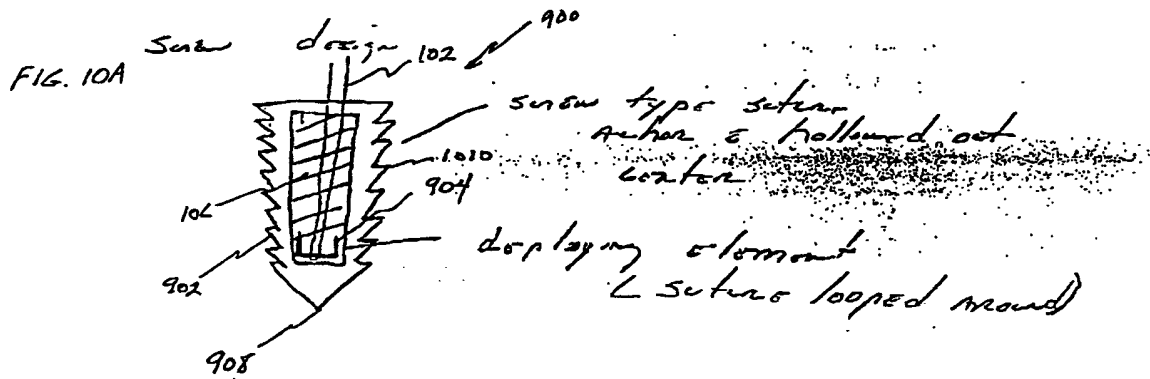 900
Screw design
102
FIG. 10A
screw type suture
Achor c̄ hollowed out
center
1010
904
106
deploying element
(suture looped around)
902
908